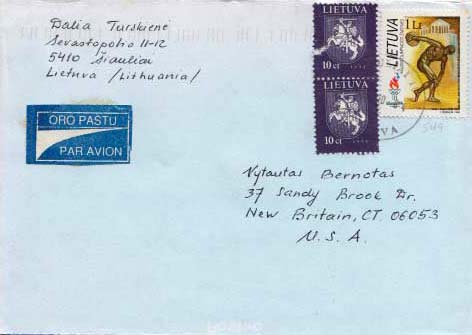 Dalia Turskienė
Sevastopolio 11-12
5410 Šiauliai
Lietuva /Lithuania/
ORO PASTU
PAR AVION
LIETUVA
10 ct
LIETUVA
10 ct
LIETUVA
1 Lt
VA
549
Vytautas Bernotas
37 Sandy Brook Dr.
New Britain, CT. 06053
U. S. A.